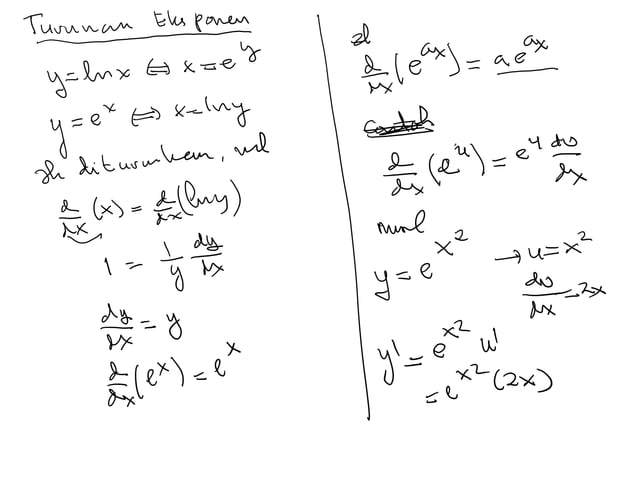 Turunan Eksponen
y = ln x ⇔ x = e^y
y = e^x ⇔ x = ln y
diturunkan,
d/dx (x) = d/dx (ln y)
1 = 1/y dy/dx
dy/dx = y
d/dx (e^x) = e^x
d/dx (e^{ax}) = a e^{ax}
d/dx (e^u) = e^u du/dx
misal
y = e^{x^2} → u = x^2
du/dx = 2x
y' = e^{x^2} u'
= e^{x^2} (2x)